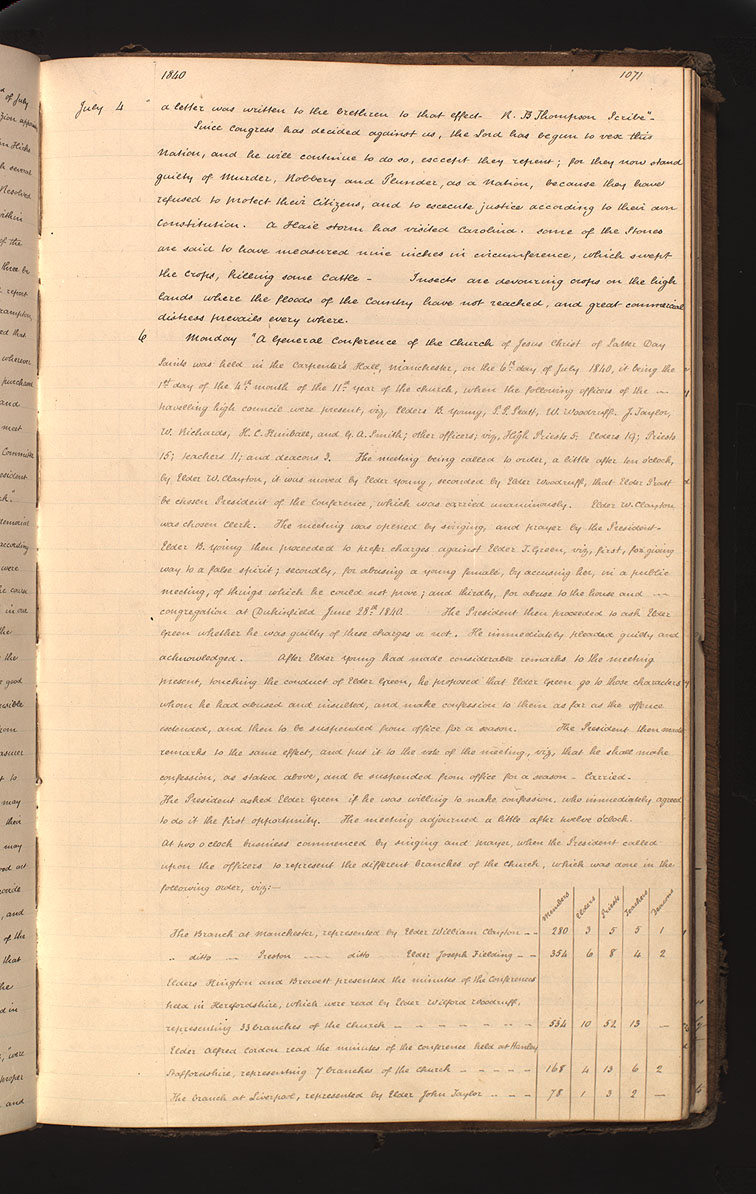 1840
1071
July 4 " a letter was written to the brethren to that effect - R. B Thompson Scribe"-
Since Congress has decided against us, the Lord has begun to vex this
Nation, and he will continue to do so, except they repent; for they now stand
guilty of Murder, Robbery and Plunder, as a Nation, because they have
refused to protect their Citizens, and to execute justice according to their own
Constitution. A Hail storm has visited Carolina. some of the Stones
are said to have measured nine inches in circumference, which swept
the crops, killing some Cattle - Insects are devouring crops on the high
lands where the floods of the Country have not reached, and great commercial
distress prevails every where.
6 Monday "A General Conference of the Church of Jesus Christ of Latter Day
Saints was held in the Carpenter's Hall, Manchester, on the 6th day of July 1840, it being the
1st day of the 4th month of the 11th year of the church, when the following officers of the —
travelling high council were present, viz, Elders B. Young, P. P. Pratt, W. Woodruff. J. Taylor,
W. Richards, H. C. Kimball, and G. A. Smith; other officers; viz, High Priests 5; Elders 19; Priests
15; teachers 11; and deacons 3. The meeting being called to order, a little after ten o'clock,
by Elder W. Clayton, it was moved by Elder Young, seconded by Elder Woodruff, that Elder Pratt
be chosen President of the Conference, which was carried unanimously. Elder W. Clayton
was chosen clerk. The meeting was opened by singing, and prayer by the President-
Elder B. Young then proceeded to prefer charges against Elder T. Green, viz, first, for giving
way to a false spirit; secondly, for abusing a young female, by accusing her, in a public
meeting, of things which he could not prove; and thirdly, for abuse to the house and —
congregation at Dukinfield June 28th 1840. The President then proceeded to ask Elder
Green whether he was guilty of these charges or not. He immediately pleaded guilty and
acknowledged. After Elder Young had made considerable remarks to the meeting
present, touching the conduct of Elder Green, he proposed that Elder Green go to those characters
whom he had abused and insulted, and make confession to them as far as the offence
extended, and then to be suspended from office for a season. The President then made
remarks to the same effect, and put it to the vote of the meeting, viz, that he shall make
confession, as stated above, and be suspended from office for a season - Carried-
The President asked Elder Green if he was willing to make confession, who immediately agreed
to do it the first opportunity. The meeting adjourned a little after twelve o'clock.
At two o clock business commenced by singing and prayer, when the President called
upon the officers to represent the different branches of the church, which was done in the
following order, viz:—
Members Elders Priests Teachers Deacons
The Branch at Manchester, represented by Elder William Clayton - - 280 3 5 5 1
" ditto — Preston —— ditto Elder Joseph Fielding - - 354 6 8 4 2
Elders Kington and Browett presented the minutes of the Conferences
held in Herefordshire, which were read by Elder Wilford Woodruff,
representing 33 branches of the Church - - - - - - - - 534 10 52 13 —
Elder Alfred Cordon read the minutes of the conference held at Hanley
Staffordshire, representing 7 branches of the church - - - - - 168 4 13 6 2
The branch at Liverpool, represented by Elder John Taylor - - - 78 1 3 2 —